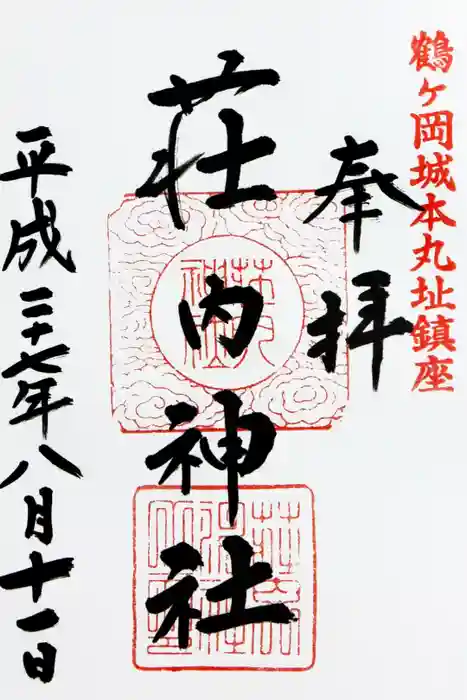 鶴ヶ岡城本丸址鎮座
奉拝
荘内神社
平成二十七年八月十一日